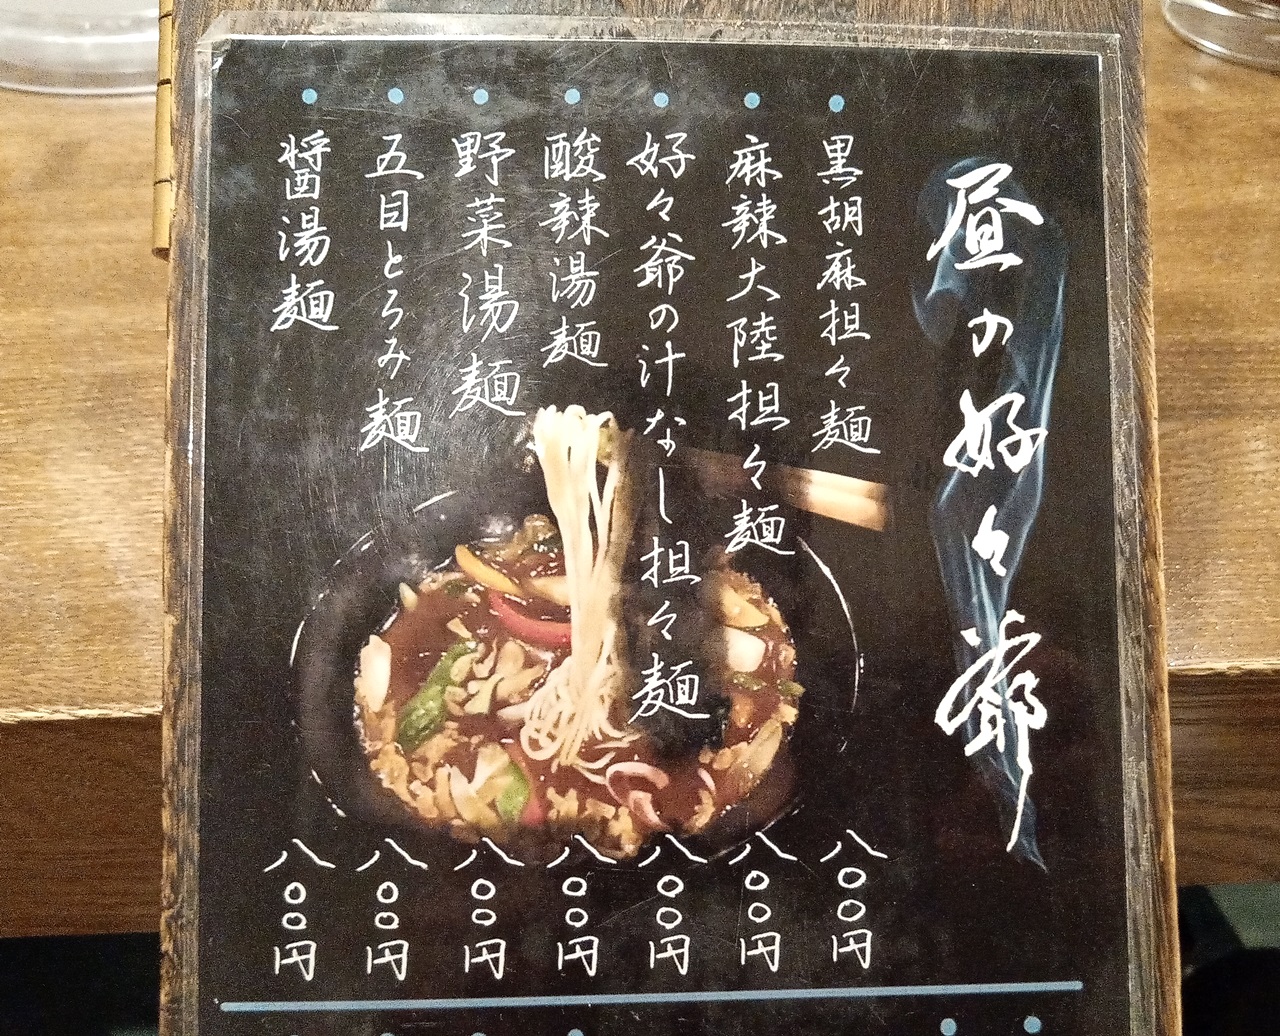 昼の好々爺
黒胡麻担々麺
八〇〇円
麻辣大陸担々麺
八〇〇円
好々爺の汁なし担々麺
八〇〇円
酸辣湯麺
八〇〇円
野菜湯麺
八〇〇円
五目とろみ麺
八〇〇円
醤湯麺
八〇〇円